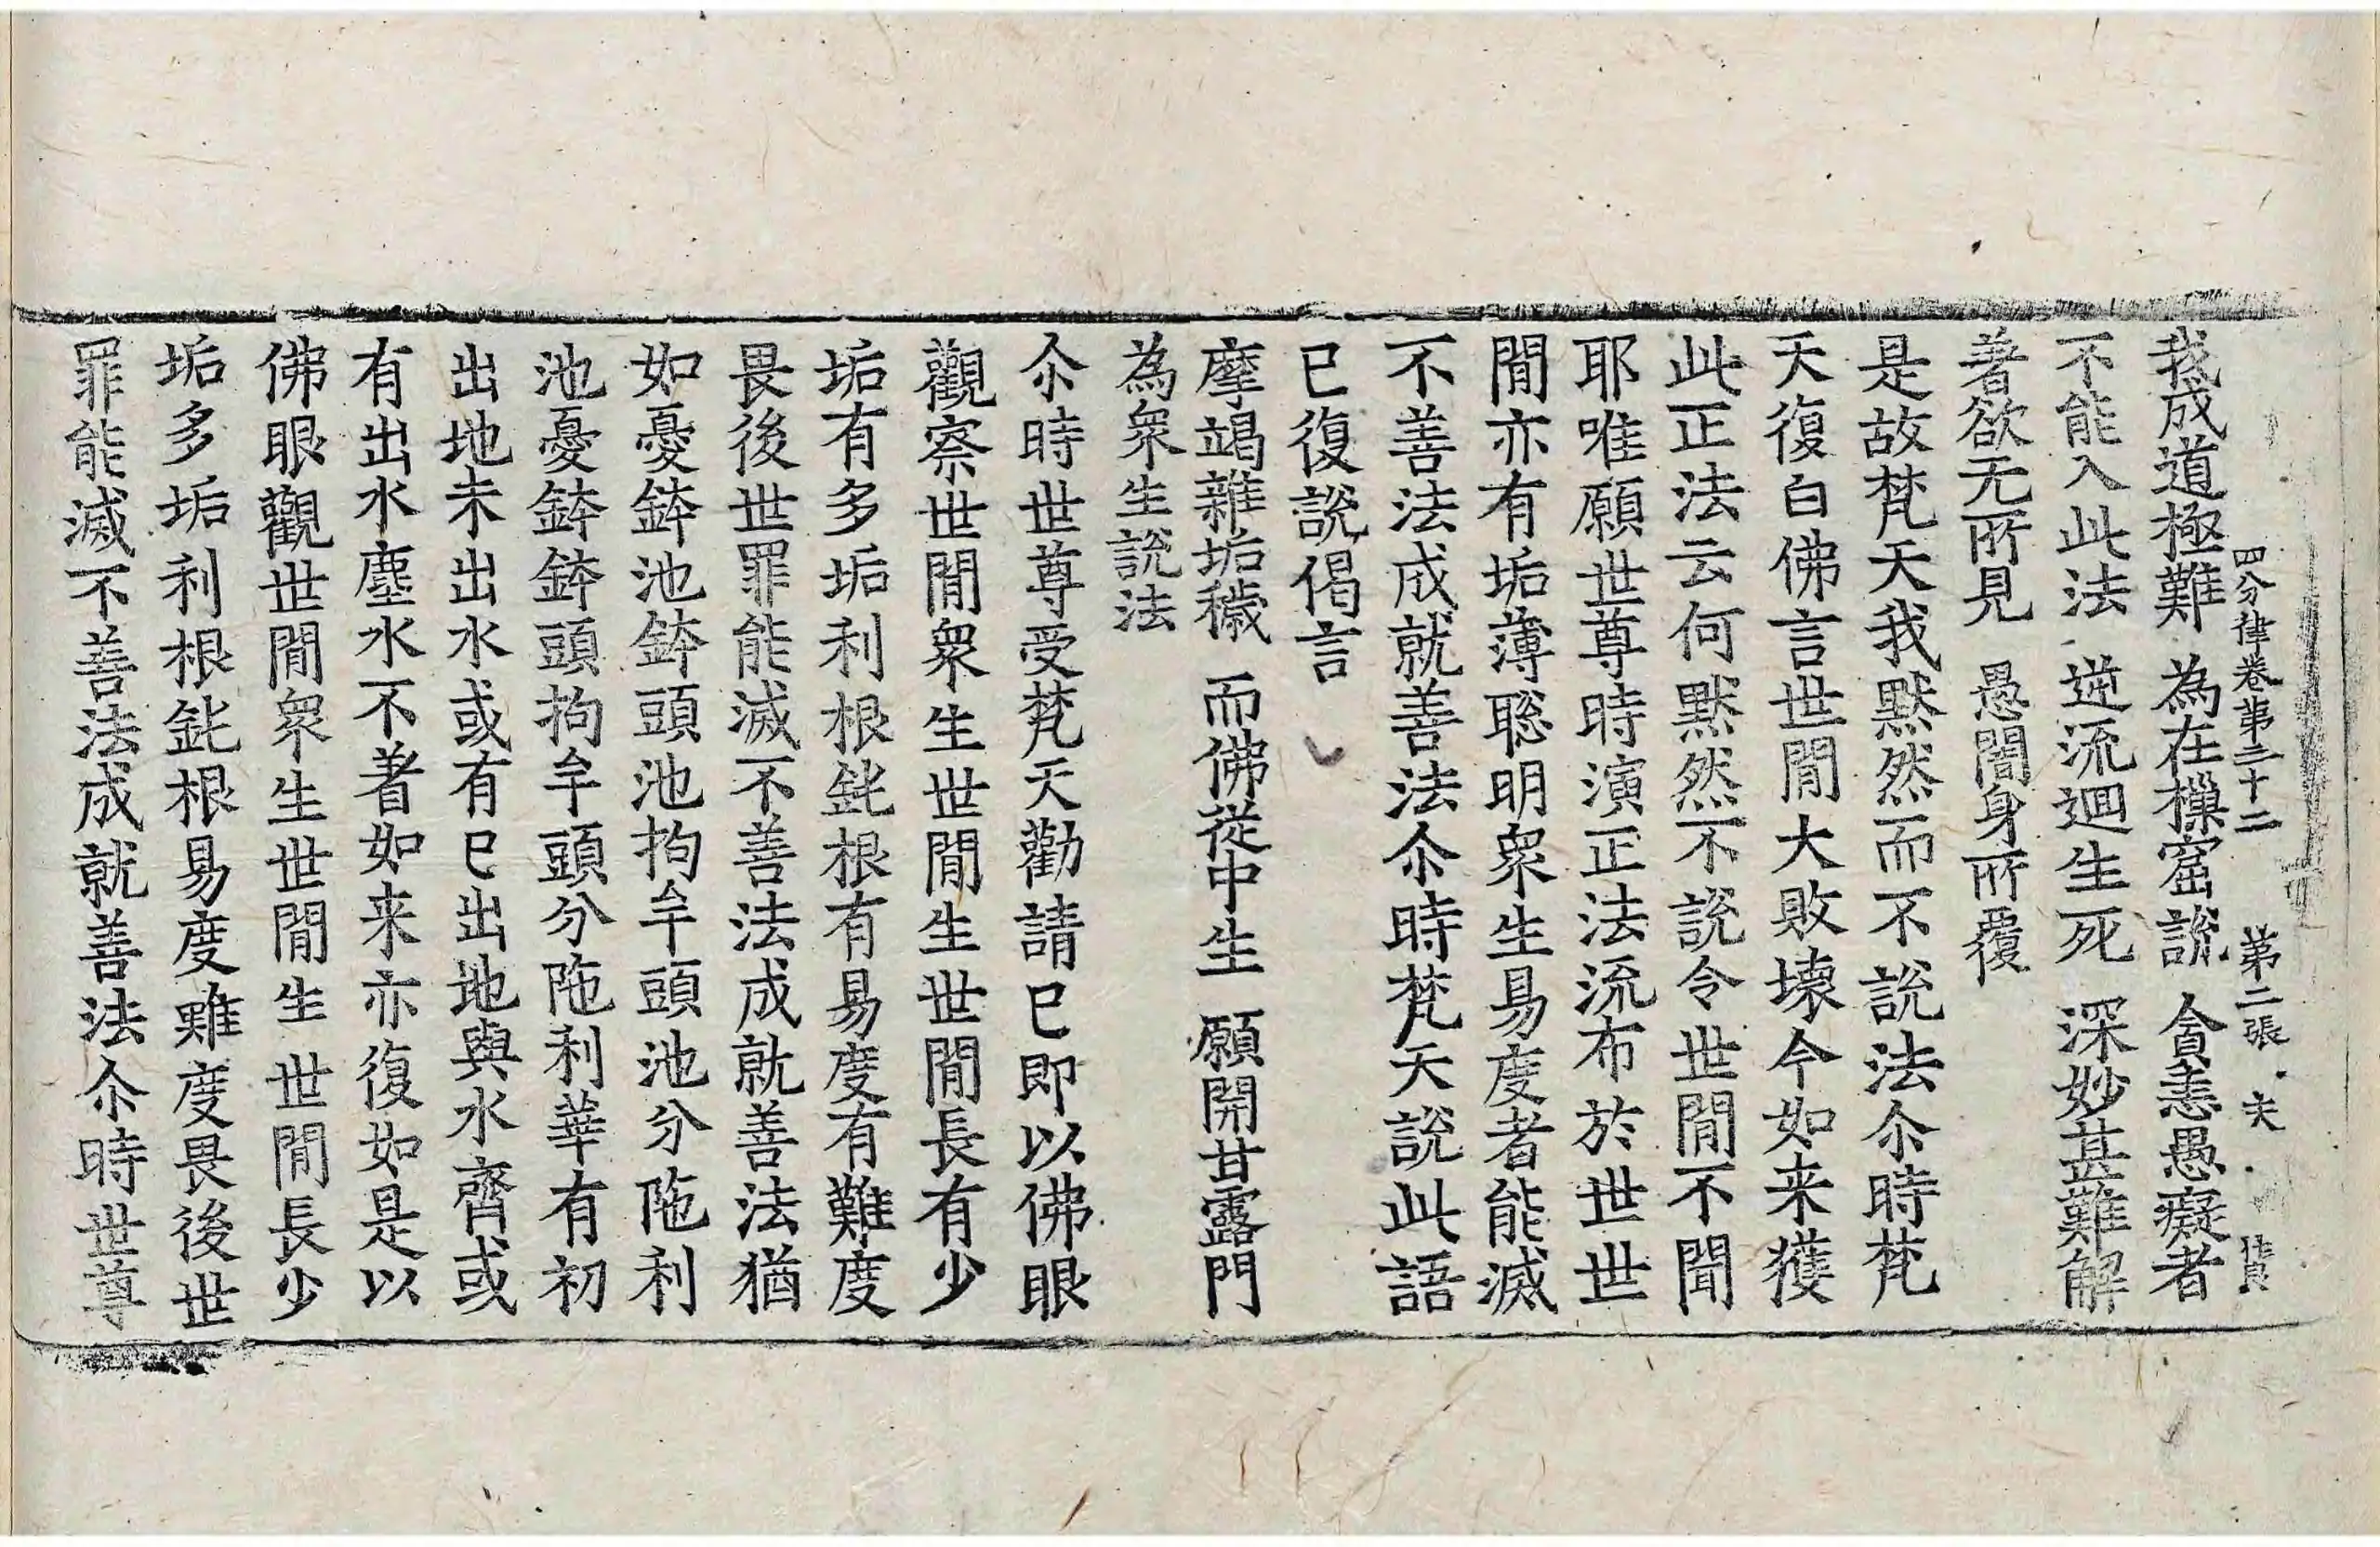 四分律卷第三十二 第二張
我成道極難 為在樔窟說 貪恚愚癡者
不能入此法 逆流迴生死 深妙甚難解
著欲无所見 愚闇身所覆
是故梵天我默然而不說法尒時梵
天復白佛言世閒大敗壞今如来獲
此正法云何默然不說令世閒不聞
耶唯願世尊時演正法流布於世世
閒亦有垢薄聡明衆生易度者能滅
不善法成就善法尒時梵天說此語
已復說偈言
摩竭雜垢穢 而佛從中生 願開甘露門
為衆生說法
尒時世尊受梵天勸請已即以佛眼
觀察世閒衆生世閒生世閒長有少
垢有多垢利根鈍根有易度有難度
畏後世罪能滅不善法成就善法猶
如憂鉢池鉢頭池拘牟頭池分陁利
池憂鉢鉢頭拘牟頭分陁利華有初
出地未出水或有已出地與水齊或
有出水塵水不著如来亦復如是以
佛眼觀世閒衆生世閒生世閒長少
垢多垢利根鈍根易度難度畏後世
罪能滅不善法成就善法尒時世尊